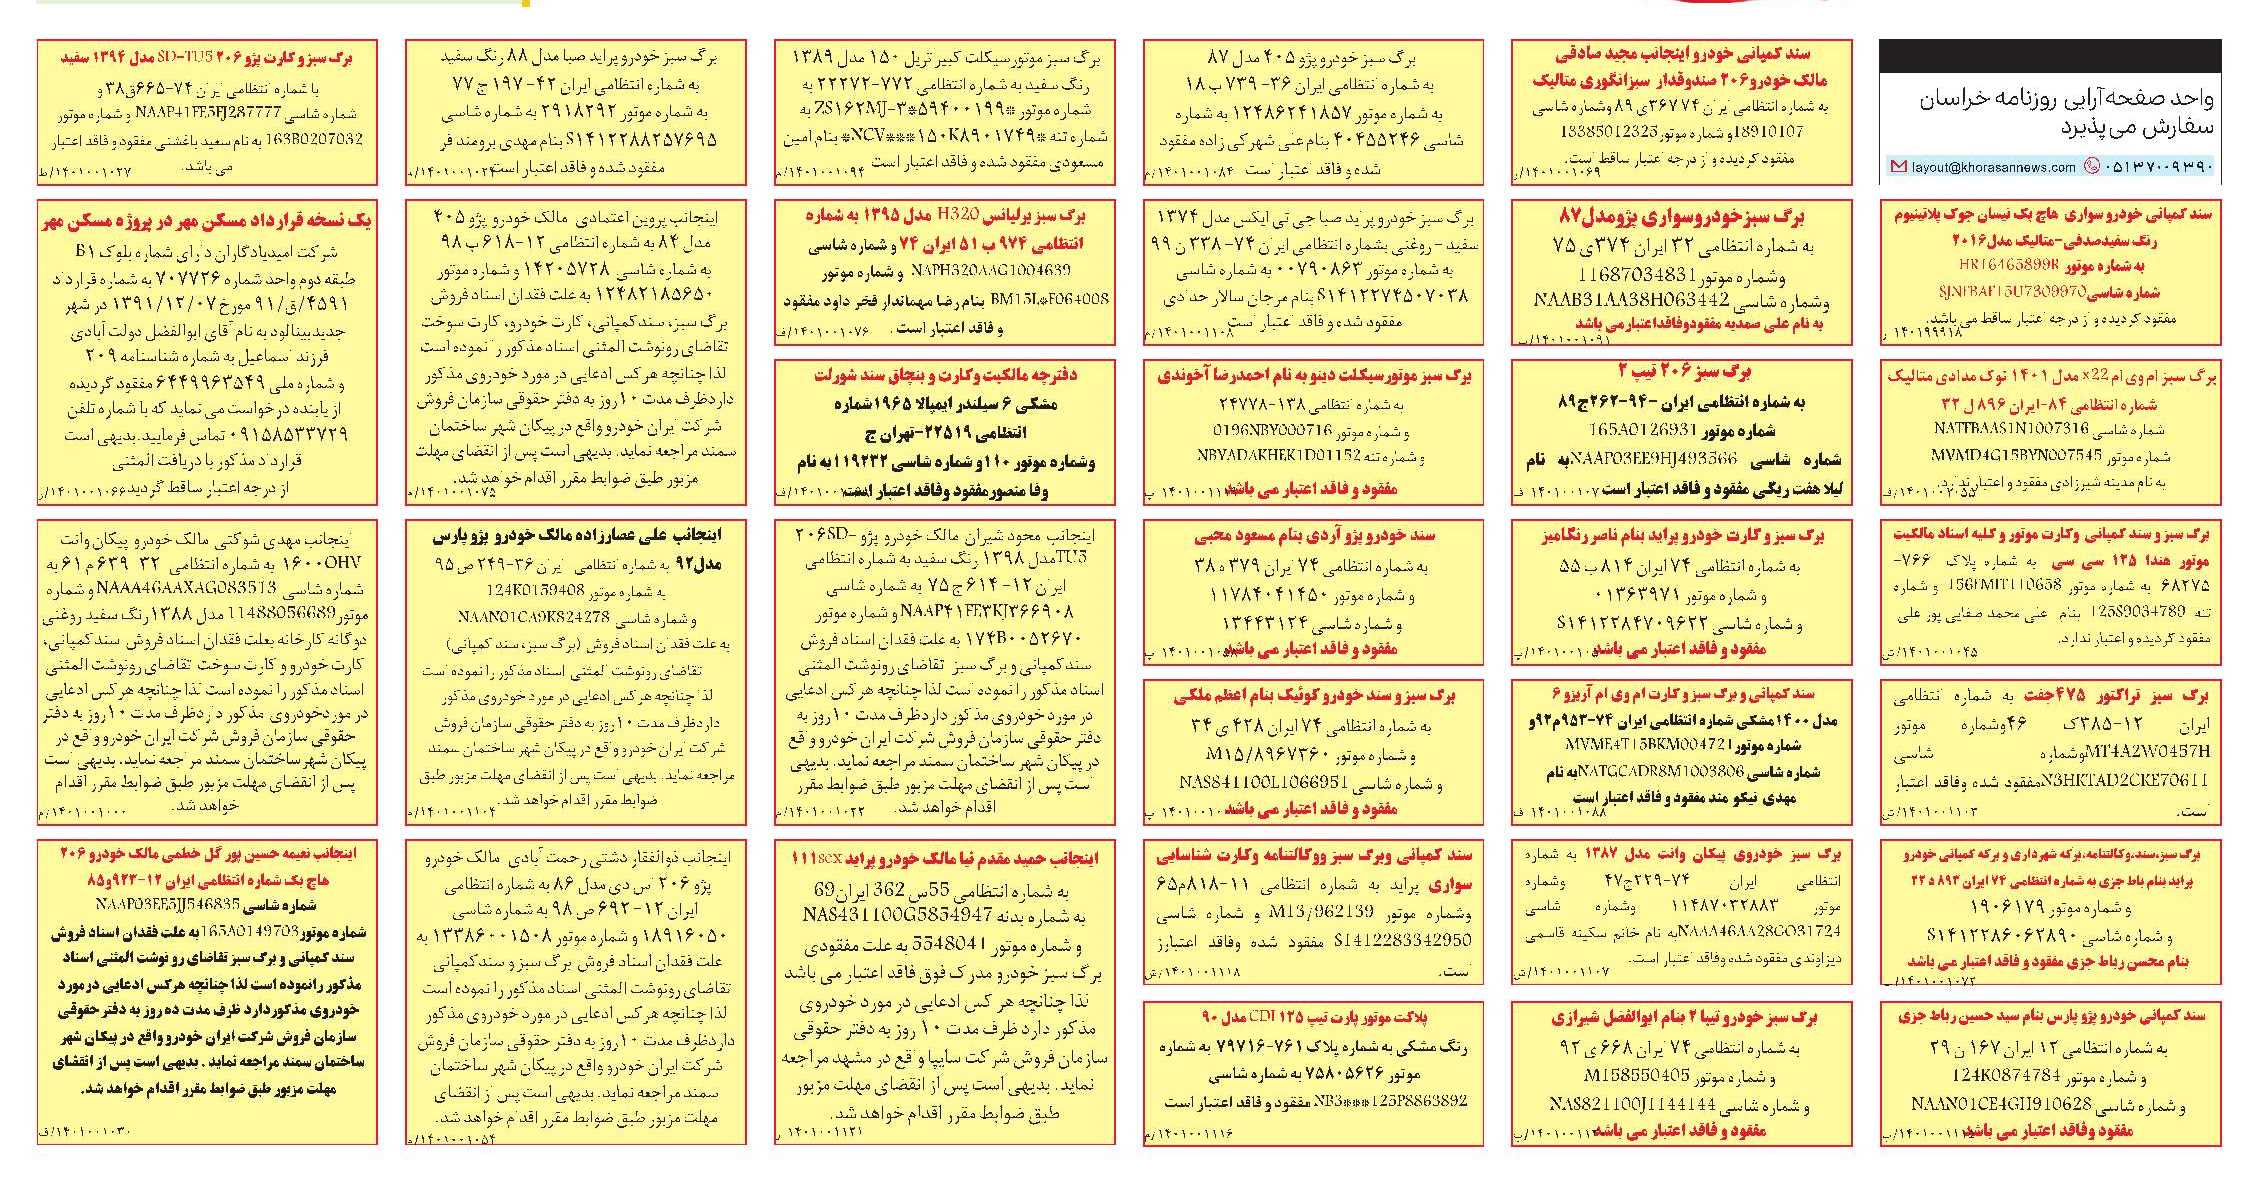 واحد صفحه‌آرایی روزنامه خراسان
سفارش می‌پذیرد
layout@khorasannews.com ۰۵۱۳۷۰۰۹۳۹۰
سند کمپانی خودرو سواری هاچ بک نیسان جوک پلاتینیوم
رنگ سفیدصدفی-متالیک مدل۲۰۱۶
به شماره موتور HR16465899R
شماره شاسی
مفقود گردیده و از درجه اعتبار ساقط می باشد.
۱۴۰۱۹۹۹۱۸ ر
برگ سبز ام وی ام x22 مدل ۱۴۰۱ نوک مدادی متالیک
شماره انتظامی ۸۴-ایران ۸۹۶ ل ۳۲
شماره شاسی NATFBAAS1N1007316
شماره موتور MVMD4G15BYN007545
به نام مدینه شیرزادی مفقود و اعتبار ندارد.
برگ سبز و سند کمپانی وکارت موتور و کلیه اسناد مالکیت
موتور هندا ۱۲۵ سی سی به شماره پلاک ۷۶۶-
۶۸۲۷۵ به شماره موتور 156FMIT110658 و شماره
تنه 125S9034789 بنام علی محمد صفایی پور علی
مفقود گردیده و اعتبار ندارد.
۱۴۰۱۰۰۱۰۴۵/ش
برگ سبز تراکتور ۴۷۵جفت به شماره انتظامی
ایران ۱۲-۳۸۵ک ۴۶وشماره موتور
MT4A2W0457Hوشماره شاسی
N3HKTAD2CKE70611مفقود شده وفاقد اعتبار
است.
۱۴۰۱۰۰۱۱۰۳/ش
برگ سبز،سند،وکالتنامه،برگه شهرداری و برگه کمپانی خودرو
پراید بنام باط جزی به شماره انتظامی ۷۴ ایران ۸۹۳ د ۲۲
و شماره موتور ۱۹۰۶۱۷۹
و شماره شاسی S۱۴۱۲۲۸۶۰۶۲۸۹۰
بنام محسن رباط جزی مفقود و فاقد اعتبار می باشد
۱۴۰۱۰۰۱۰۷۲/پ
سند کمپانی خودرو پژو پارس بنام سید حسین رباط جزی
به شماره انتظامی ۱۲ ایران ۱۶۷ ن ۲۹
و شماره موتور 124K0874784
و شماره شاسی NAAN01CE4GH910628
مفقود وفاقد اعتبار می باشد
سند کمپانی خودرو اینجانب مجید صادقی
مالک خودرو۲۰۶ صندوقدار سبزانگوری متالیک
به شماره انتظامی ایران ۷۴ ۳۶۷ی ۸۹ وشماره شاسی
18910107و شماره موتور 13385012325
مفقود گردیده و از درجه اعتبار ساقط است.
۱۴۰۱۰۰۱۰۶۹/ر
برگ سبزخودروسواری پژومدل۸۷
به شماره انتظامی ۳۲ ایران ۳۷۴ی ۷۵
وشماره موتور 11687034831
وشماره شاسی NAAB31AA38H063442
به نام علی صمدیه مفقودوفاقداعتبارمی باشد
۱۴۰۱۰۰۱۰۹۱/پ
برگ سبز ۲۰۶ تیپ ۲
به شماره انتظامی ایران -۹۴-۲۶۲ج۸۹
شماره موتور 165A0126931
شماره شاسی NAAP03EE9HJ493566به نام
لیلا هفت ریگی مفقود و فاقد اعتبار است
برگ سبز و کارت خودرو پراید بنام ناصر رنگامیز
به شماره انتظامی ۷۴ ایران ۸۱۴ ب ۵۵
و شماره موتور ۰۱۳۶۳۹۷۱
و شماره شاسی S۱۴۱۲۲۸۴۷۰۹۶۲۲
مفقود و فاقد اعتبار می باشد
سند کمپانی و برگ سبز و کارت ام وی ام آریزو ۶
مدل ۱۴۰۰مشکی شماره انتظامی ایران ۷۴-۹۵۳م۹۲و
شماره موتورMVME4T15BKM004721
شماره شاسی NATGCADR8M1003806به نام
مهدی نیکو مند مفقود و فاقد اعتبار است
۱۴۰۱۰۰۱۰۸۸ ف
برگ سبز خودروی پیکان وانت مدل ۱۳۸۷ به شماره
انتظامی ایران ۷۴-۲۲۹ج۴۷ وشماره
موتور ۱۱۴۸۷۰۳۲۸۸۳ وشماره شاسی
NAAA46AA28GO31724به نام خانم سکینه قاسمی
دیزاوندی مفقود شده وفاقد اعتبار است.
۱۴۰۱۰۰۱۱۰۷/ش
برگ سبز خودرو تیبا ۲ بنام ابوالفضل شیرازی
به شماره انتظامی ۷۴ ایران ۶۶۸ ی ۹۲
و شماره موتور M158550405
و شماره شاسی NAS821100J1144144
مفقود و فاقد اعتبار می باشد
برگ سبز خودرو پژو ۴۰۵ مدل ۸۷
به شماره انتظامی ایران ۳۶- ۷۳۹ ب ۱۸
به شماره موتور ۱۲۴۸۶۲۴۱۸۵۷ به شماره
شاسی ۴۰۴۵۵۲۴۶ بنام علی شهرکی زاده مفقود
شده و فاقد اعتبار است
۱۴۰۱۰۰۱۰۸۴/م
برگ سبز خودرو پراید صبا جی تی ایکس مدل ۱۳۷۴
سفید - روغنی بشماره انتظامی ایران ۷۴- ۳۳۸ ن ۹۹
به شماره موتور ۰۰۷۹۰۸۶۳ به شماره شاسی
S۱۴۱۲۲۷۴۵۰۷۰۳۸ بنام مرجان سالار حدادی
مفقود شده و فاقد اعتبار است.
۱۴۰۱۰۰۱۱۰۸/م
برگ سبز موتورسیکلت دینو به نام احمدرضا آخوندی
به شماره انتظامی ۱۳۸-۲۴۷۷۸
و شماره موتور 0196NBY000716
و شماره تنه NBYADAKHEK1D01152
مفقود و فاقد اعتبار می باشد
سند خودرو پژو آردی بنام مسعود محبی
به شماره انتظامی ۷۴ ایران ۳۷۹ ه ۳۸
و شماره موتور ۱۱۷۸۴۰۴۱۴۵۰
و شماره شاسی ۱۳۴۴۳۱۲۴
مفقود و فاقد اعتبار می باشد
برگ سبز و سند خودرو کوئیک بنام اعظم ملکی
به شماره انتظامی ۷۴ ایران ۴۲۸ ی ۳۴
و شماره موتور M۱۵/۸۹۶۷۳۶۰
و شماره شاسی NAS841100L1066951
مفقود و فاقد اعتبار می باشد
سند کمپانی وبرگ سبز ووکالتنامه وکارت شناسایی
سواری پراید به شماره انتظامی ۱۱-۸۱۸م۶۵
وشماره موتور M13/962139 و شماره شاسی
S1412283342950 مفقود شده وفاقد اعتبارز
است.
۱۴۰۱۰۰۱۱۱۸/ش
پلاکت موتور پارت تیپ CDI ۱۲۵ مدل ۹۰
رنگ مشکی به شماره پلاک ۷۶۱-۷۹۷۱۶ به شماره
موتور ۷۵۸۰۵۶۲۶ به شماره شاسی
NB3***125P8863892 مفقود و فاقد اعتبار است
۱۴۰۱۰۰۱۱۱۶/م
برگ سبز موتورسیکلت کبیر تریل ۱۵۰ مدل ۱۳۸۹
رنگ سفید به شماره انتظامی ۷۷۲-۲۲۲۷۲ به
شماره موتور *ZS۱۶۲MJ-۳*۵۹۴۰۰۱۹۹ به
شماره تنه *NCV***۱۵۰K۸۹۰۱۷۴۹* بنام امین
مسعودی مفقود شده و فاقد اعتبار است
۱۴۰۱۰۰۱۰۹۴/م
برگ سبز برلیانس H320 مدل ۱۳۹۵ به شماره
انتظامی ۹۷۴ ب ۵۱ ایران ۷۴ و شماره شاسی
NAPH320AAG1004639 و شماره موتور
BM15L*F064008 بنام رضا مهماندار فخر داود مفقود
و فاقد اعتبار است .
۱۴۰۱۰۰۱۰۷۶/ف
دفترچه مالکیت وکارت و بنچاق سند شورلت
مشکی ۶ سیلندر ایمپالا ۱۹۶۵شماره
انتظامی ۲۲۵۱۹-تهران ج
وشماره موتور ۱۱۰و شماره شاسی ۱۱۹۲۳۲به نام
وفا منصورمفقود وفاقد اعتبار است
اینجانب محود شیران مالک خودرو پژو ۲۰۶SD-
TU5مدل ۱۳۹۸ رنگ سفید به شماره انتظامی
ایران ۱۲- ۶۱۴ ج ۷۵ به شماره شاسی
NAAP۴۱FE۳KJ۳۶۶۹۰۸ و شماره موتور
۱۷۴B۰۰۵۲۶۷۰ به علت فقدان اسناد فروش
سند کمپانی و برگ سبز تقاضای رونوشت المثنی
اسناد مذکور را نموده است لذا چنانچه هر کس ادعایی
در مورد خودروی مذکور دارد ظرف مدت ۱۰ روز به
دفتر حقوقی سازمان فروش شرکت ایران خودرو واقع
در پیکان شهر ساختمان سمند مراجعه نماید. بدیهی
است پس از انقضای مهلت مزبور طبق ضوابط مقرر
اقدام خواهد شد.
۱۴۰۱۰۰۱۰۲۲/م
اینجانب حمید مقدم نیا مالک خودرو پراید 111sex
به شماره انتظامی 55س 362 ایران69
به شماره بدنه NAS431100G5854947
و شماره موتور 5548041 به علت مفقودی
برگ سبز خودرو مدرک فوق فاقد اعتبار می باشد
لذا چنانچه هر کس ادعایی در مورد خودروی
مذکور دارد ظرف مدت ۱۰ روز به دفتر حقوقی
سازمان فروش شرکت سایپا واقع در مشهد مراجعه
نماید. بدیهی است پس از انقضای مهلت مزبور
طبق ضوابط مقرر اقدام خواهد شد.
۱۴۰۱۰۰۱۱۲۱ ر
برگ سبز خودرو پراید صبا مدل ۸۸ رنگ سفید
به شماره انتظامی ایران ۴۲- ۱۹۷ ج ۷۷
به شماره موتور ۲۹۱۸۲۹۲ به شماره شاسی
S۱۴۱۲۲۸۸۲۵۷۶۹۵ بنام مهدی برومند فر
مفقود شده و فاقد اعتبار است
اینجانب پروین اعتمادی مالک خودرو پژو ۴۰۵
مدل ۸۴ به شماره انتظامی ۱۲-۶۱۸ ب ۹۸
به شماره شاسی ۱۴۲۰۵۷۲۸ و شماره موتور
۱۲۴۸۲۱۸۵۶۵۰ به علت فقدان اسناد فروش
برگ سبز، سند کمپانی، کارت خودرو، کارت سوخت
تقاضای رونوشت المثنی اسناد مذکور را نموده است
لذا چنانچه هر کس ادعایی در مورد خودروی مذکور
دارد ظرف مدت ۱۰ روز به دفتر حقوقی سازمان فروش
شرکت ایران خودرو واقع در پیکان شهر ساختمان
سمند مراجعه نماید. بدیهی است پس از انقضای مهلت
مزبور طبق ضوابط مقرر اقدام خواهد شد.
۱۴۰۱۰۰۱۰۷۵/م
اینجانب علی عصارزاده مالک خودرو پژو پارس
مدل۹۲ به شماره انتظامی ایران ۳۶-۲۴۹ ص ۹۵
به شماره موتور 124K0159408
و شماره شاسی NAAN01CA9K824278
به علت فقدان اسناد فروش (برگ سبز، سند کمپانی)
تقاضای رونوشت المثنی اسناد مذکور را نموده است
لذا چنانچه هر کس ادعایی در مورد خودروی مذکور
دارد ظرف مدت ۱۰ روز به دفتر حقوقی سازمان فروش
شرکت ایران خودرو واقع در پیکان شهر ساختمان سمند
مراجعه نماید. بدیهی است پس از انقضای مهلت مزبور طبق
ضوابط مقرر اقدام خواهد شد.
۱۴۰۱۰۰۱۱۰۴/م
اینجانب ذوالفقار دشتی رحمت آبادی مالک خودرو
پژو ۲۰۶ اس دی مدل ۸۶ به شماره انتظامی
ایران ۱۲- ۶۹۲ ص ۹۸ به شماره شاسی
۱۸۹۱۶۰۵۰ و شماره موتور ۱۳۳۸۶۰۰۱۵۰۸ به
علت فقدان اسناد فروش برگ سبز و سند کمپانی
تقاضای رونوشت المثنی اسناد مذکور را نموده است
لذا چنانچه هر کس ادعایی در مورد خودروی مذکور
دارد ظرف مدت ۱۰ روز به دفتر حقوقی سازمان فروش
شرکت ایران خودرو واقع در پیکان شهر ساختمان
سمند مراجعه نماید. بدیهی است پس از انقضای
مهلت مزبور طبق ضوابط مقرر اقدام خواهد شد.
۱۴۰۱۰۰۱۰۵۴/م
برگ سبز و کارت پژو ۲۰۶ SD-TU5 مدل ۱۳۹۴ سفید
با شماره انتظامی ایران ۷۴-۶۶۵ق۳۸ و
شماره شاسی NAAP41FE5FJ287777 و شماره موتور
163B0207032 به نام سعید باغشنی مفقود و فاقد اعتبار
می باشد.
۱۴۰۱۰۰۱۰۲۷/ط
یک نسخه قرارداد مسکن مهر در پروژه مسکن مهر
شرکت امیدیادگاران دارای شماره بلوک B۱
طبقه دوم واحد شماره ۷۰۷۷۲۶ به شماره قرارداد
۴۵۹۱/ق/۹۱ مورخ ۱۳۹۱/۱۲/۰۷ در شهر
جدیدبینالود به نام آقای ابوالفضل دولت آبادی
فرزند اسماعیل به شماره شناسنامه ۲۰۹
و شماره ملی ۶۴۴۹۹۶۳۵۴۹ مفقود گردیده
از یابنده درخواست می نماید که با شماره تلفن
۰۹۱۵۸۵۳۳۷۲۹ تماس فرمایید.بدیهی است
قرارداد مذکور با دریافت المثنی
از درجه اعتبار ساقط گردید
۱۴۰۱۰۰۱۰۶۶/ر
اینجانب مهدی شوکتی مالک خودرو پیکان وانت
۱۶۰۰OHV به شماره انتظامی ۳۲ ۶۳۹ م ۶۱ به
شماره شاسی NAAA46AAXAG083513 و شماره
موتور11488056689 مدل ۱۳۸۸ رنگ سفید روغنی
دوگانه کارخانه بعلت فقدان اسناد فروش سند کمپانی،
کارت خودرو و کارت سوخت تقاضای رونوشت المثنی
اسناد مذکور را نموده است لذا چنانچه هر کس ادعایی
در مورد خودروی مذکور دارد ظرف مدت ۱۰ روز به دفتر
حقوقی سازمان فروش شرکت ایران خودرو واقع در
پیکان شهر ساختمان سمند مراجعه نماید. بدیهی است
پس از انقضای مهلت مزبور طبق ضوابط مقرر اقدام
خواهد شد.
۱۴۰۱۰۰۱۰۰۰/م
اینجانب نعیمه حسین پور گل خطمی مالک خودرو ۲۰۶
هاچ بک شماره انتظامی ایران ۱۲-۹۲۳و۸۵
شماره شاسی NAAP03EE5JJ546835
شماره موتور165A0149703به علت فقدان اسناد فروش
سند کمپانی و برگ سبز تقاضای رو نوشت المثنی اسناد
مذکور رانموده است لذا چنانچه هرکس ادعایی درمورد
خودروی مذکوردارد ظرف مدت ده روز به دفتر حقوقی
سازمان فروش شرکت ایران خودرو واقع در پیکان شهر
ساختمان سمند مراجعه نماید . بدیهی است پس از انقضای
مهلت مزبور طبق ضوابط مقرر اقدام خواهد شد.
۱۴۰۱۰۰۱۰۳۰/ف